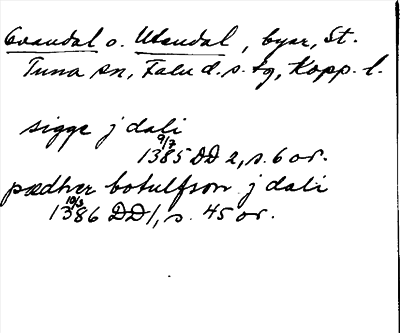 Ovandal o. Utendal, byar, St.
Tuna sn, Falu d. s. tg, Kopp. l.
sigge j dali
9/7 1385 DD 2, s. 6 or.
pædher botulfson j dali
10/3 1386 DD 1, s. 45 or.